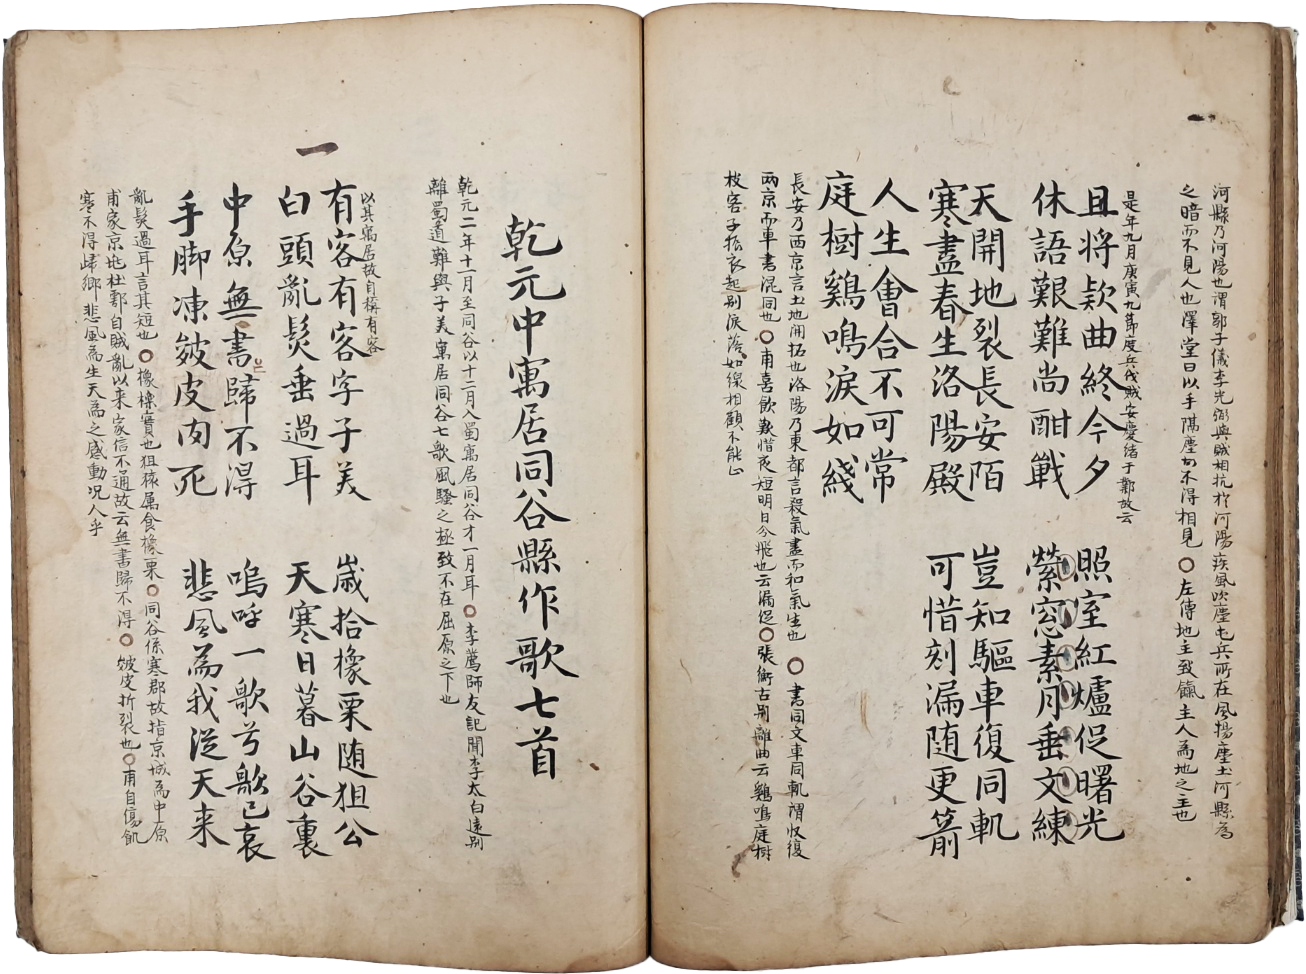 河縣乃河陽也謂郭子儀李光弼與賊相抗於河陽疾風吹塵屯兵所在風揚塵土河縣為
之暗而不見人也澤堂曰以手隔塵而不得相見〇左傳地主致餼主人為地之主也
是年九月庚寅九節度兵伐賊安慶緒于鄴故云
且将欵曲終今夕 照室紅爐促曙光
休語艱難尚酣戰 縈窓素月垂文練
天開地裂長安陌 豈知驅車復同軌
寒盡春生洛陽殿 可惜刻漏随更箭
人生會合不可常
庭樹鷄鳴淚如綫
長安乃西京言土地開拓也洛陽乃東都言殺氣盡而和氣生也〇書同文車同軌謂收復
兩京而車書混同也〇甫喜飮歎惜夜短明日分飛也云漏促〇張衡古別離曲云鷄鳴庭樹
枝客子振衣起別淚落如線相顧不能止
乾元中寓居同谷縣作歌七首
乾元二年十一月至同谷以十二月入蜀寓居同谷才一月耳〇李薦師友記聞李太白遠別
離蜀道難與子美寓居同谷七歌風騷之極致不在屈原之下也
一
以其寓居故自稱有客
有客有客字子美 歲拾橡栗随狙公
白頭亂髮垂過耳 天寒日暮山谷裏
中原無書歸不得 嗚呼一歌兮歌已哀
手脚凍皴皮肉死 悲風為我從天来
亂髮過耳言其短也〇橡櫟實也狙猿属食橡栗〇同谷係寒郡故指京城為中原
甫家京地杜鄠自賊亂以来家信不通故云無書歸不得〇皴皮折裂也〇甫自傷飢
寒不得歸鄉悲風為生天為之感動况人乎